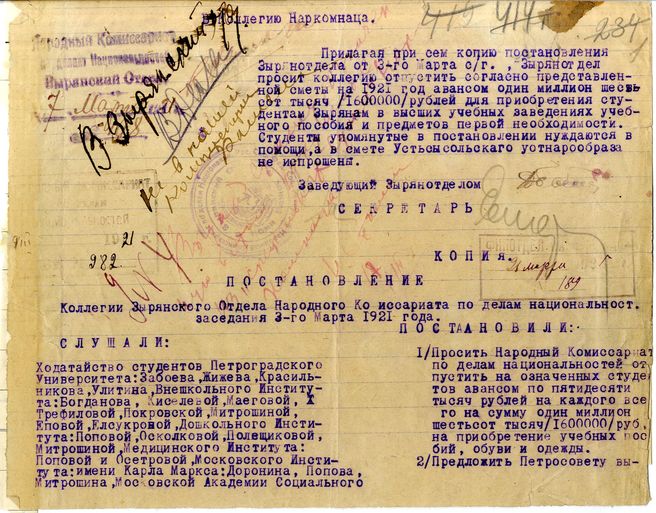 В Коллегию Наркомнаца.
234
Народный Комиссариат
Зырянский Отдел
7
В Зырянский
Прилагая при сем копию постановления
Зырянотдела от 3-го Марта с/г. , Зырянотдел
просит коллегию отпустить согласно представлен-
ной сметы на 1921 год авансом один миллион шесть-
сот тысяч /1600000/рублей для приобретения сту-
дентам Зырянам в высших учебных заведениях учеб-
ного пособия и предметов первой необходимости.
Студенты упомянутые в постановлении нуждаются в
помощи,а в смете Устьсысольского уотнарообраза
не испрошены.
Заведующий Зырянотделом
СЕКРЕТАРЬ
982
21
КОПИЯ.
ФИН.ОТДЕЛ
21 марта
189
ПОСТАНОВЛЕНИЕ
Коллегии Зырянского Отдела Народного Ко иссариата по делам националност.
заседания 3-го Марта 1921 года.
СЛУШАЛИ:
Ходатайство студентов Петроградского
Университета:Забоева,Жижева,Красиль-
никова,Улитина,Внешкольного Институ-
та:Богданова, Киселевой, Маеговой,
Трефиловой,Покровской,Митрошиной,
Еповой,Елсукровой,Дошкольного Инсти-
тута:Поповой,Осколковой,Полещиковой,
Митрошиной,Медицинского Института:
Поповой и Осетровой,Московского Инсти-
тута:имени Карла Маркса:Доронина, Попова,
Митрошина,Московской Академии Социального
ПОСТАНОВИЛИ:
1/Просить Народный Комиссариат
по делам национальностей от
пустить на означенных студе
тов авансом по пятидесяти
тысяч рублей на каждого все
го на сумму один миллион
шестьсот тысяч/1600000/руб,
на приобретение учебных пос
бий, обуви и одежды.
2/Предложить Петросовету вы-